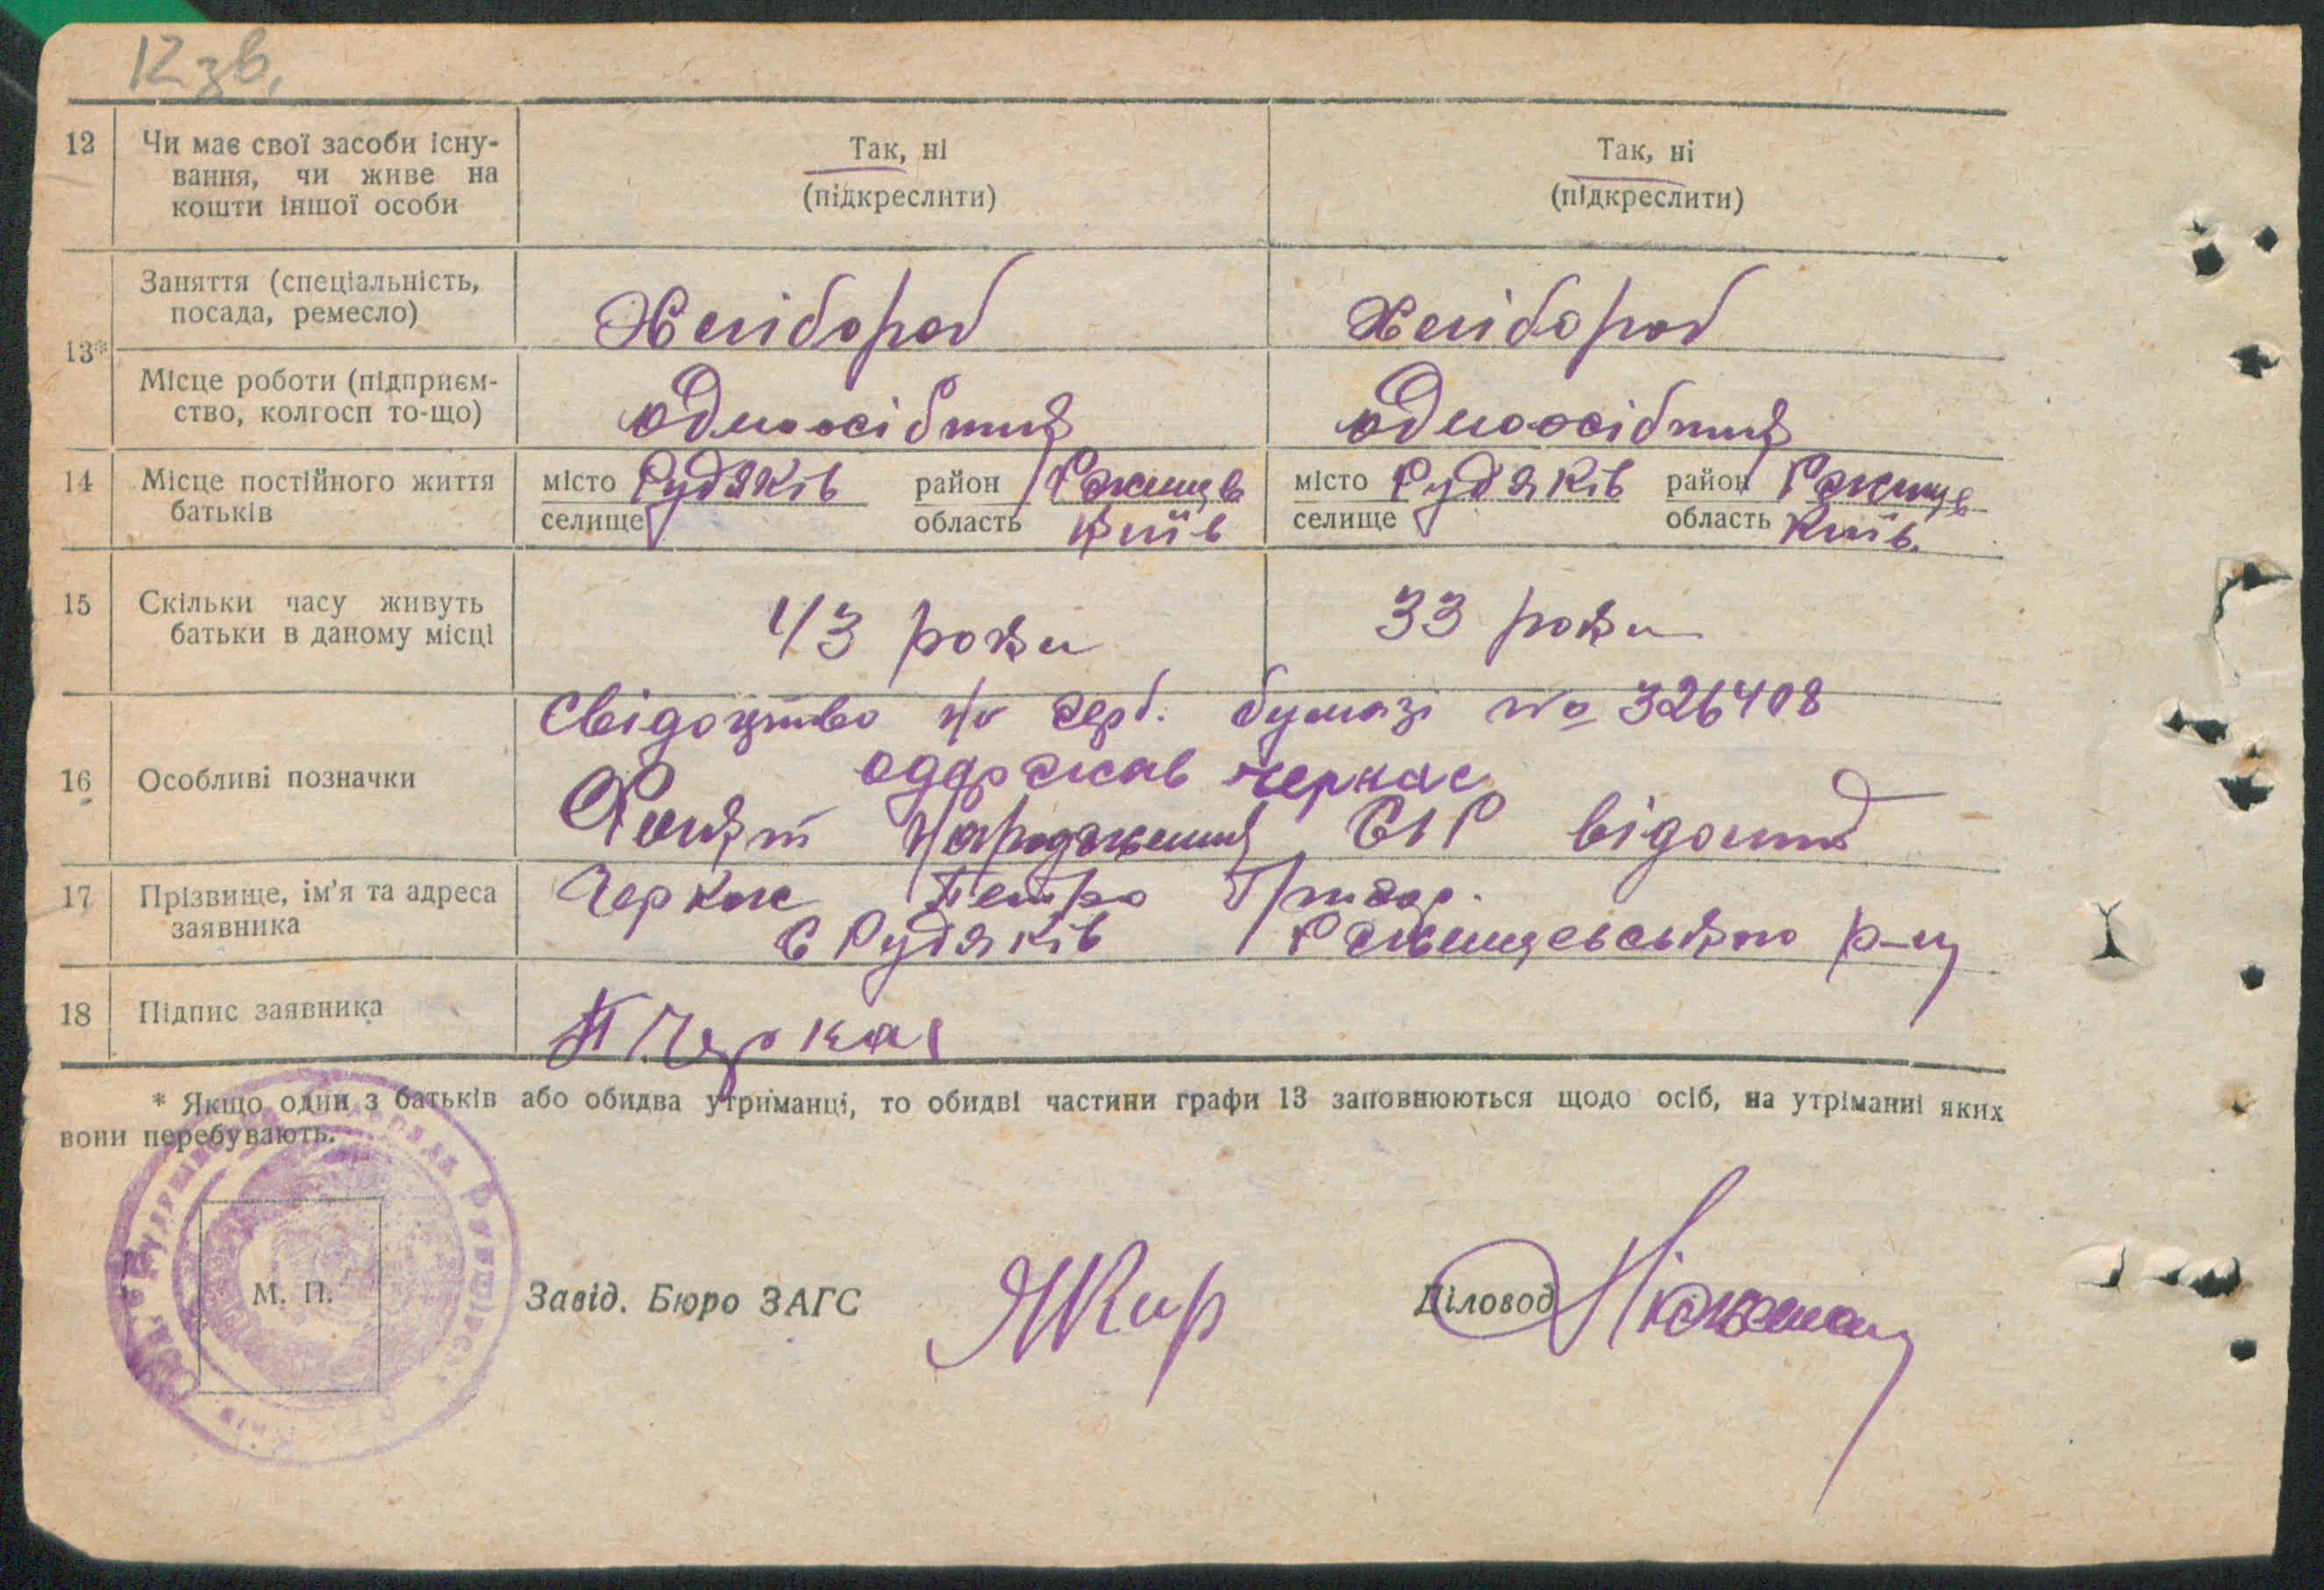 12 зв.
12 Чи має свої засоби існу-
вання, чи живе на
кошти іншої особи
Так, ні
(підкреслити)
Так, ні
(підкреслити)
13*
Заняття (спеціальність,
посада, ремесло)
Хлібороб
Хлібороб
Місце роботи (підприєм-
ство, колгосп то-що)
одноосібник
одноосібник
14 Місце постійного життя
батьків
місто Рудяків район Ржищев
селище область Київ
місто Рудяків район Ржищев
селище область Київ.
15 Скільки часу живуть
батьки в даному місці
43 роки
33 роки
16 Особливі позначки
Свідоцтво на герб. бумазі № 326408
одержав Черкас
Факт народження С/Р відомий
17 Прізвище, ім'я та адреса
заявника
Черкас Петро Григор.
с Рудяків Ржищевського р-ну
18 Підпис заявника
П Черкас
* Якщо один з батьків або обидва утриманці, то обидві частини графи 13 заповнюються щодо осіб, на утриманні яких
вони перебувають.
М. П.
Завід. Бюро ЗАГС
Діловод